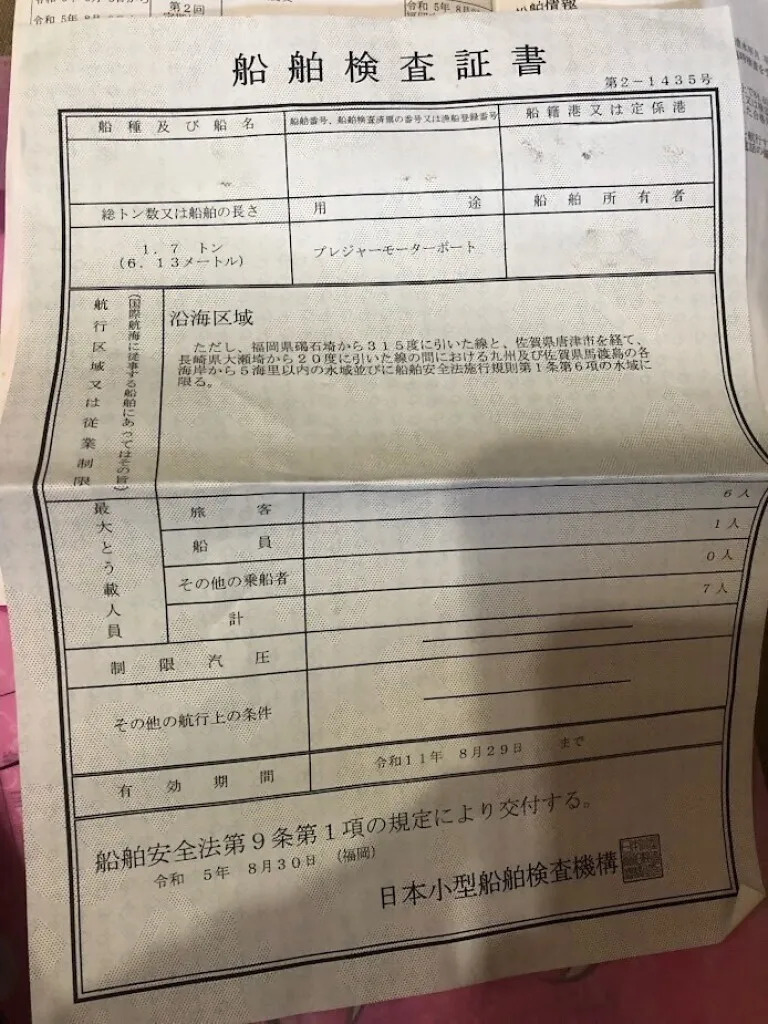 令和 5年 8月
第2回
令和 5年 8月
船舶情報
船舶検査証書
第2-1435号
船種及び船名
船舶番号、船舶検査済票の番号又は漁船登録番号
船籍港又は定係港
総トン数又は船舶の長さ
用途
船舶所有者
1.7 トン
(6.13メートル)
プレジャーモーターボート
航行区域又は従業制限
(国際航海に従事する船舶にあってはその旨)
沿海区域
ただし、福岡県碣石埼から315度に引いた線と、佐賀県唐津市を経て、
長崎県大瀬埼から20度に引いた線の間における九州及び佐賀県馬渡島の各
海岸から5海里以内の水域並びに船舶安全法施行規則第1条第6項の水域に
限る。
最大とう載人員
旅客 6人
船員 1人
その他の乗船者 0人
計 7人
制限汽圧
その他の航行上の条件
有効期間
令和11年 8月29日 まで
船舶安全法第9条第1項の規定により交付する。
令和 5年 8月30日 (福岡)
日本小型船舶検査機構